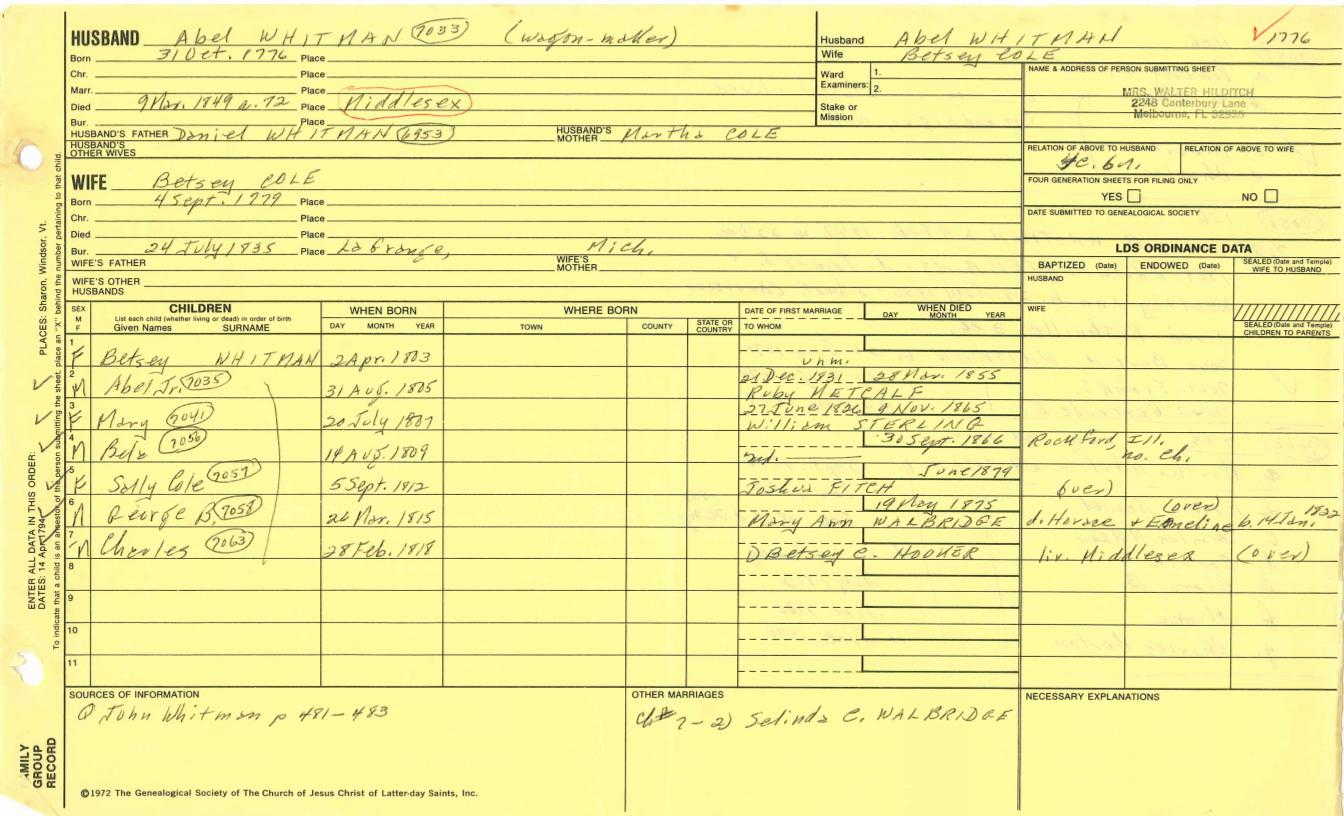 HUSBAND Abel WHITMAN 7033 (wagon-maker)
Born 31 Oct. 1776 Place
Chr. Place
Marr. Place
Died 9 Mar. 1849 a. 72 Place Middlesex
Bur. Place
HUSBAND'S FATHER Daniel WHITMAN 6953 HUSBAND'S MOTHER Martha COLE
HUSBAND'S OTHER WIVES
WIFE Betsey COLE
Born 4 Sept. 1779 Place
Chr. Place
Died Place
Bur. 24 July 1835 Place LaGrange, Mich.
WIFE'S FATHER WIFE'S MOTHER
WIFE'S OTHER HUSBANDS
Husband Abel WHITMAN 1776
Wife Betsey COLE
Ward Examiners: 1. 2.
Stake or Mission
NAME & ADDRESS OF PERSON SUBMITTING SHEET
MRS. WALTER HILDITCH
2248 Canterbury Lane
Melbourne, FL 32935
RELATION OF ABOVE TO HUSBAND RELATION OF ABOVE TO WIFE
FOUR GENERATION SHEETS FOR FILING ONLY
YES NO
DATE SUBMITTED TO GENEALOGICAL SOCIETY
LDS ORDINANCE DATA
BAPTIZED (Date) ENDOWED (Date) SEALED (Date and Temple) WIFE TO HUSBAND
HUSBAND
WIFE
SEALED (Date and Temple) CHILDREN TO PARENTS
SEX M F
CHILDREN
List each child (whether living or dead) in order of birth
Given Names SURNAME
WHEN BORN
DAY MONTH YEAR
WHERE BORN
TOWN COUNTY STATE OR COUNTRY
DATE OF FIRST MARRIAGE
TO WHOM
WHEN DIED
DAY MONTH YEAR
1 F Betsey WHITMAN 2 Apr. 1803 unm.
2 M Abel Jr. 7035 31 Aug. 1805 21 Dec. 1831 28 Mar. 1855
Ruby METCALF
3 F Mary 7041 20 July 1807 27 June 1826 9 Nov. 1865
William STERLING
4 M 7056 14 Aug. 1809 30 Sept. 1866 Rockford, Ill.
md. no. ch.
5 F Sally Cole 7057 5 Sept. 1812 June 1879
Joshua FITCH (over)
6 M George B. 7058 26 Mar. 1815 19 May 1875 (over)
Mary Ann WALBRIDGE d. Horace & Emeline b. 14 Jan. 1822
7 M Charles 7063 28 Feb. 1818 1) Betsey C. HOOKER liv. Middlesex (over)
8
9
10
11
SOURCES OF INFORMATION
John Whitman p 481-483
OTHER MARRIAGES
ch# 7-2) Selinda C. WALBRIDGE
NECESSARY EXPLANATIONS
©1972 The Genealogical Society of The Church of Jesus Christ of Latter-day Saints, Inc.
ENTER ALL DATA IN THIS ORDER:
DATES: 14 Apr 1794 PLACES: Sharon, Windsor, Vt.
To indicate that a child is an ancestor of the person submitting the sheet, place an "X" behind the number pertaining to that child.
FAMILY GROUP RECORD